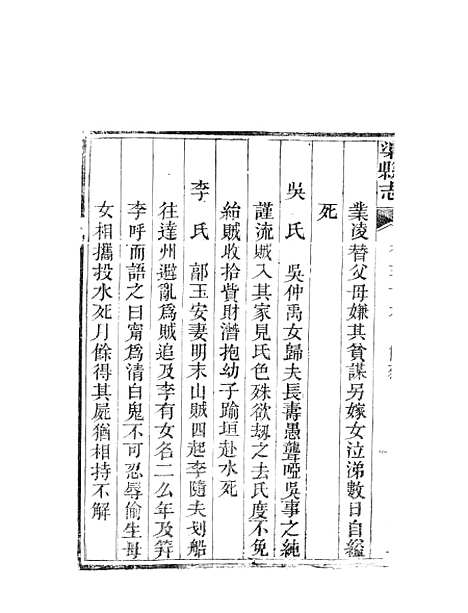 渠縣志
業凌替父母嫌其貧謀另嫁女泣涕數日自縊
死
吳氏 吳仲禹女歸夫長壽愚聾啞吳事之純
謹流賊入其家見氏色殊欲刼之去氏度不免
紿賊收拾貲財潛抱幼子踰垣赴水死
李氏 郭玉安妻明末山賊四起李隨夫划船
往達州避亂為賊追及李有女名二么年及筓
李呼而語之曰甯為清白鬼不可忍辱偷生母
女相攜投水死月餘得其屍猶相持不解